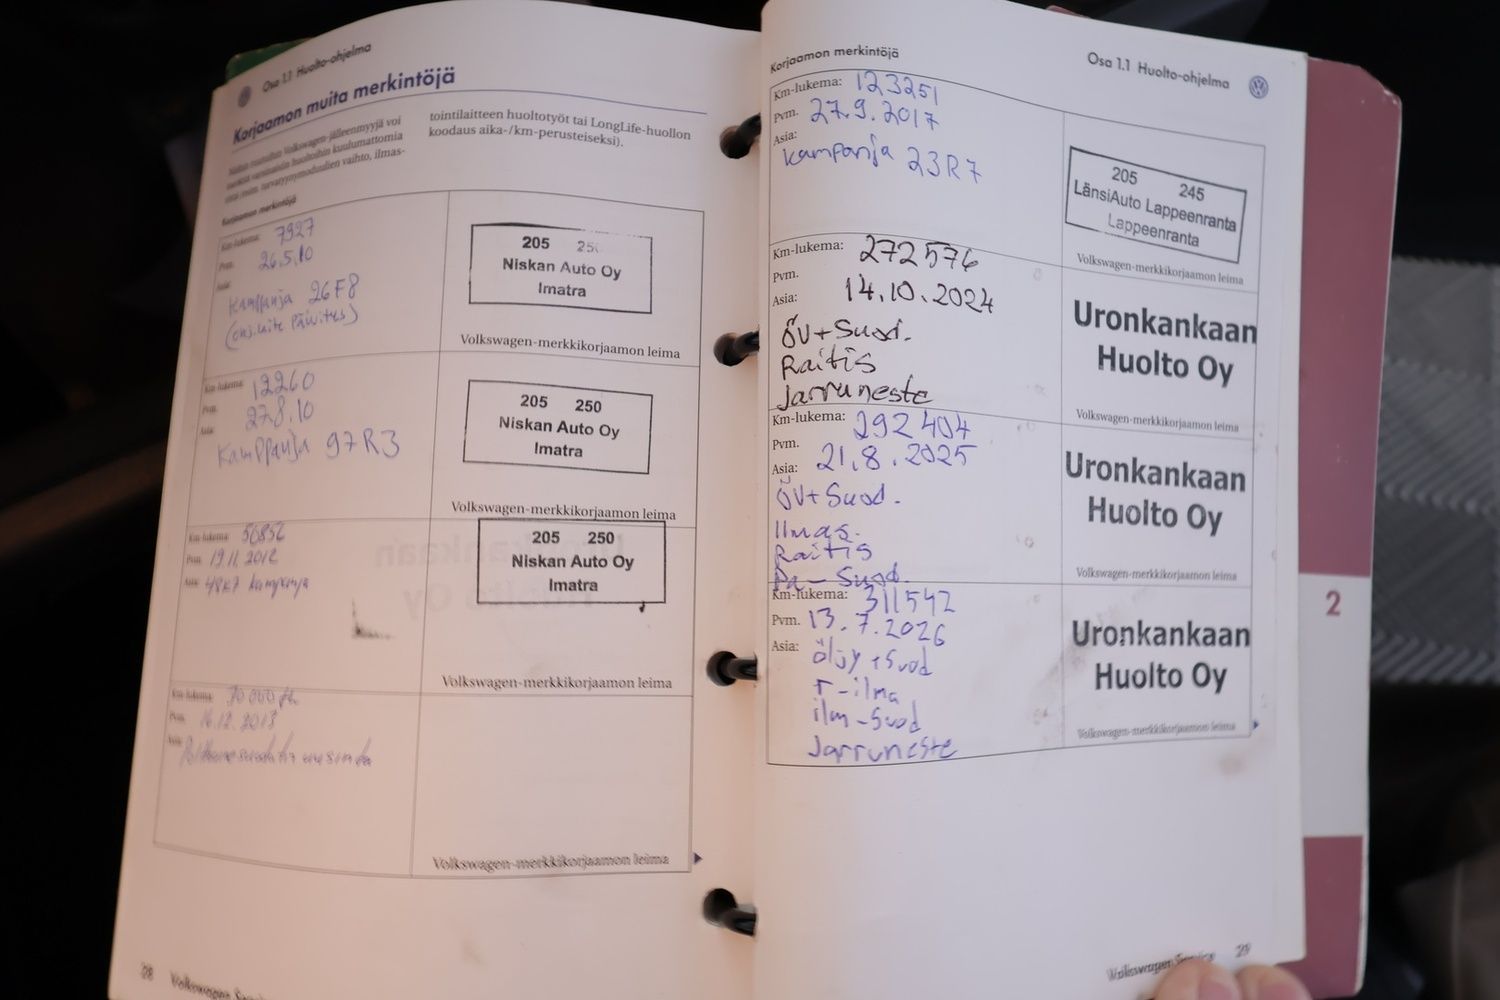 Osa 1.1 Huolto-ohjelma
Korjaamon muita merkintöjä
tointilaitteen huoltotyöt tai LongLife-huollon
koodaus aika-/km-perusteiseksi).
Korjaamon merkintöjä
Km-lukema: 7927
Pvm. 26.5.10
Asia:
Kamppanja 26F8
205
Niskan Auto Oy
Imatra
Volkswagen-merkkikorjaamon leima
Km-lukema: 12260
Pvm. 27.8.10
Asia:
Kamppanja 97R3
205 250
Niskan Auto Oy
Imatra
Volkswagen-merkkikorjaamon leima
Km-lukema: 50856
Pvm. 19.11.2012
Asia: 48K7 kampanja
205 250
Niskan Auto Oy
Imatra
Volkswagen-merkkikorjaamon leima
Km-lukema:
Pvm. 16.12.2013
Asia:
Volkswagen-merkkikorjaamon leima
28 Volkswagen
Korjaamon merkintöjä
Osa 1.1 Huolto-ohjelma
Km-lukema: 123251
Pvm. 27.9.2017
Asia:
Kampanja 23R7
205 245
LänsiAuto Lappeenranta
Lappeenranta
Volkswagen-merkkikorjaamon leima
Km-lukema: 272576
Pvm.
14.10.2024
Asia:
ÖV+Suod.
Raitis
Jarruneste
Uronkankaan
Huolto Oy
Volkswagen-merkkikorjaamon leima
Km-lukema: 292404
Pvm.
21.8.2025
Asia:
ÖV+Suod.
Ilmas.
Raitis
Pa-Suod.
Uronkankaan
Huolto Oy
Volkswagen-merkkikorjaamon leima
Km-lukema: 311542
Pvm. 13.7.2026
Asia:
öljy+Suod
r-ilma
ilm-Suod
Jarruneste
Uronkankaan
Huolto Oy
Volkswagen-merkkikorjaamon leima
Volkswagen Service 29
2